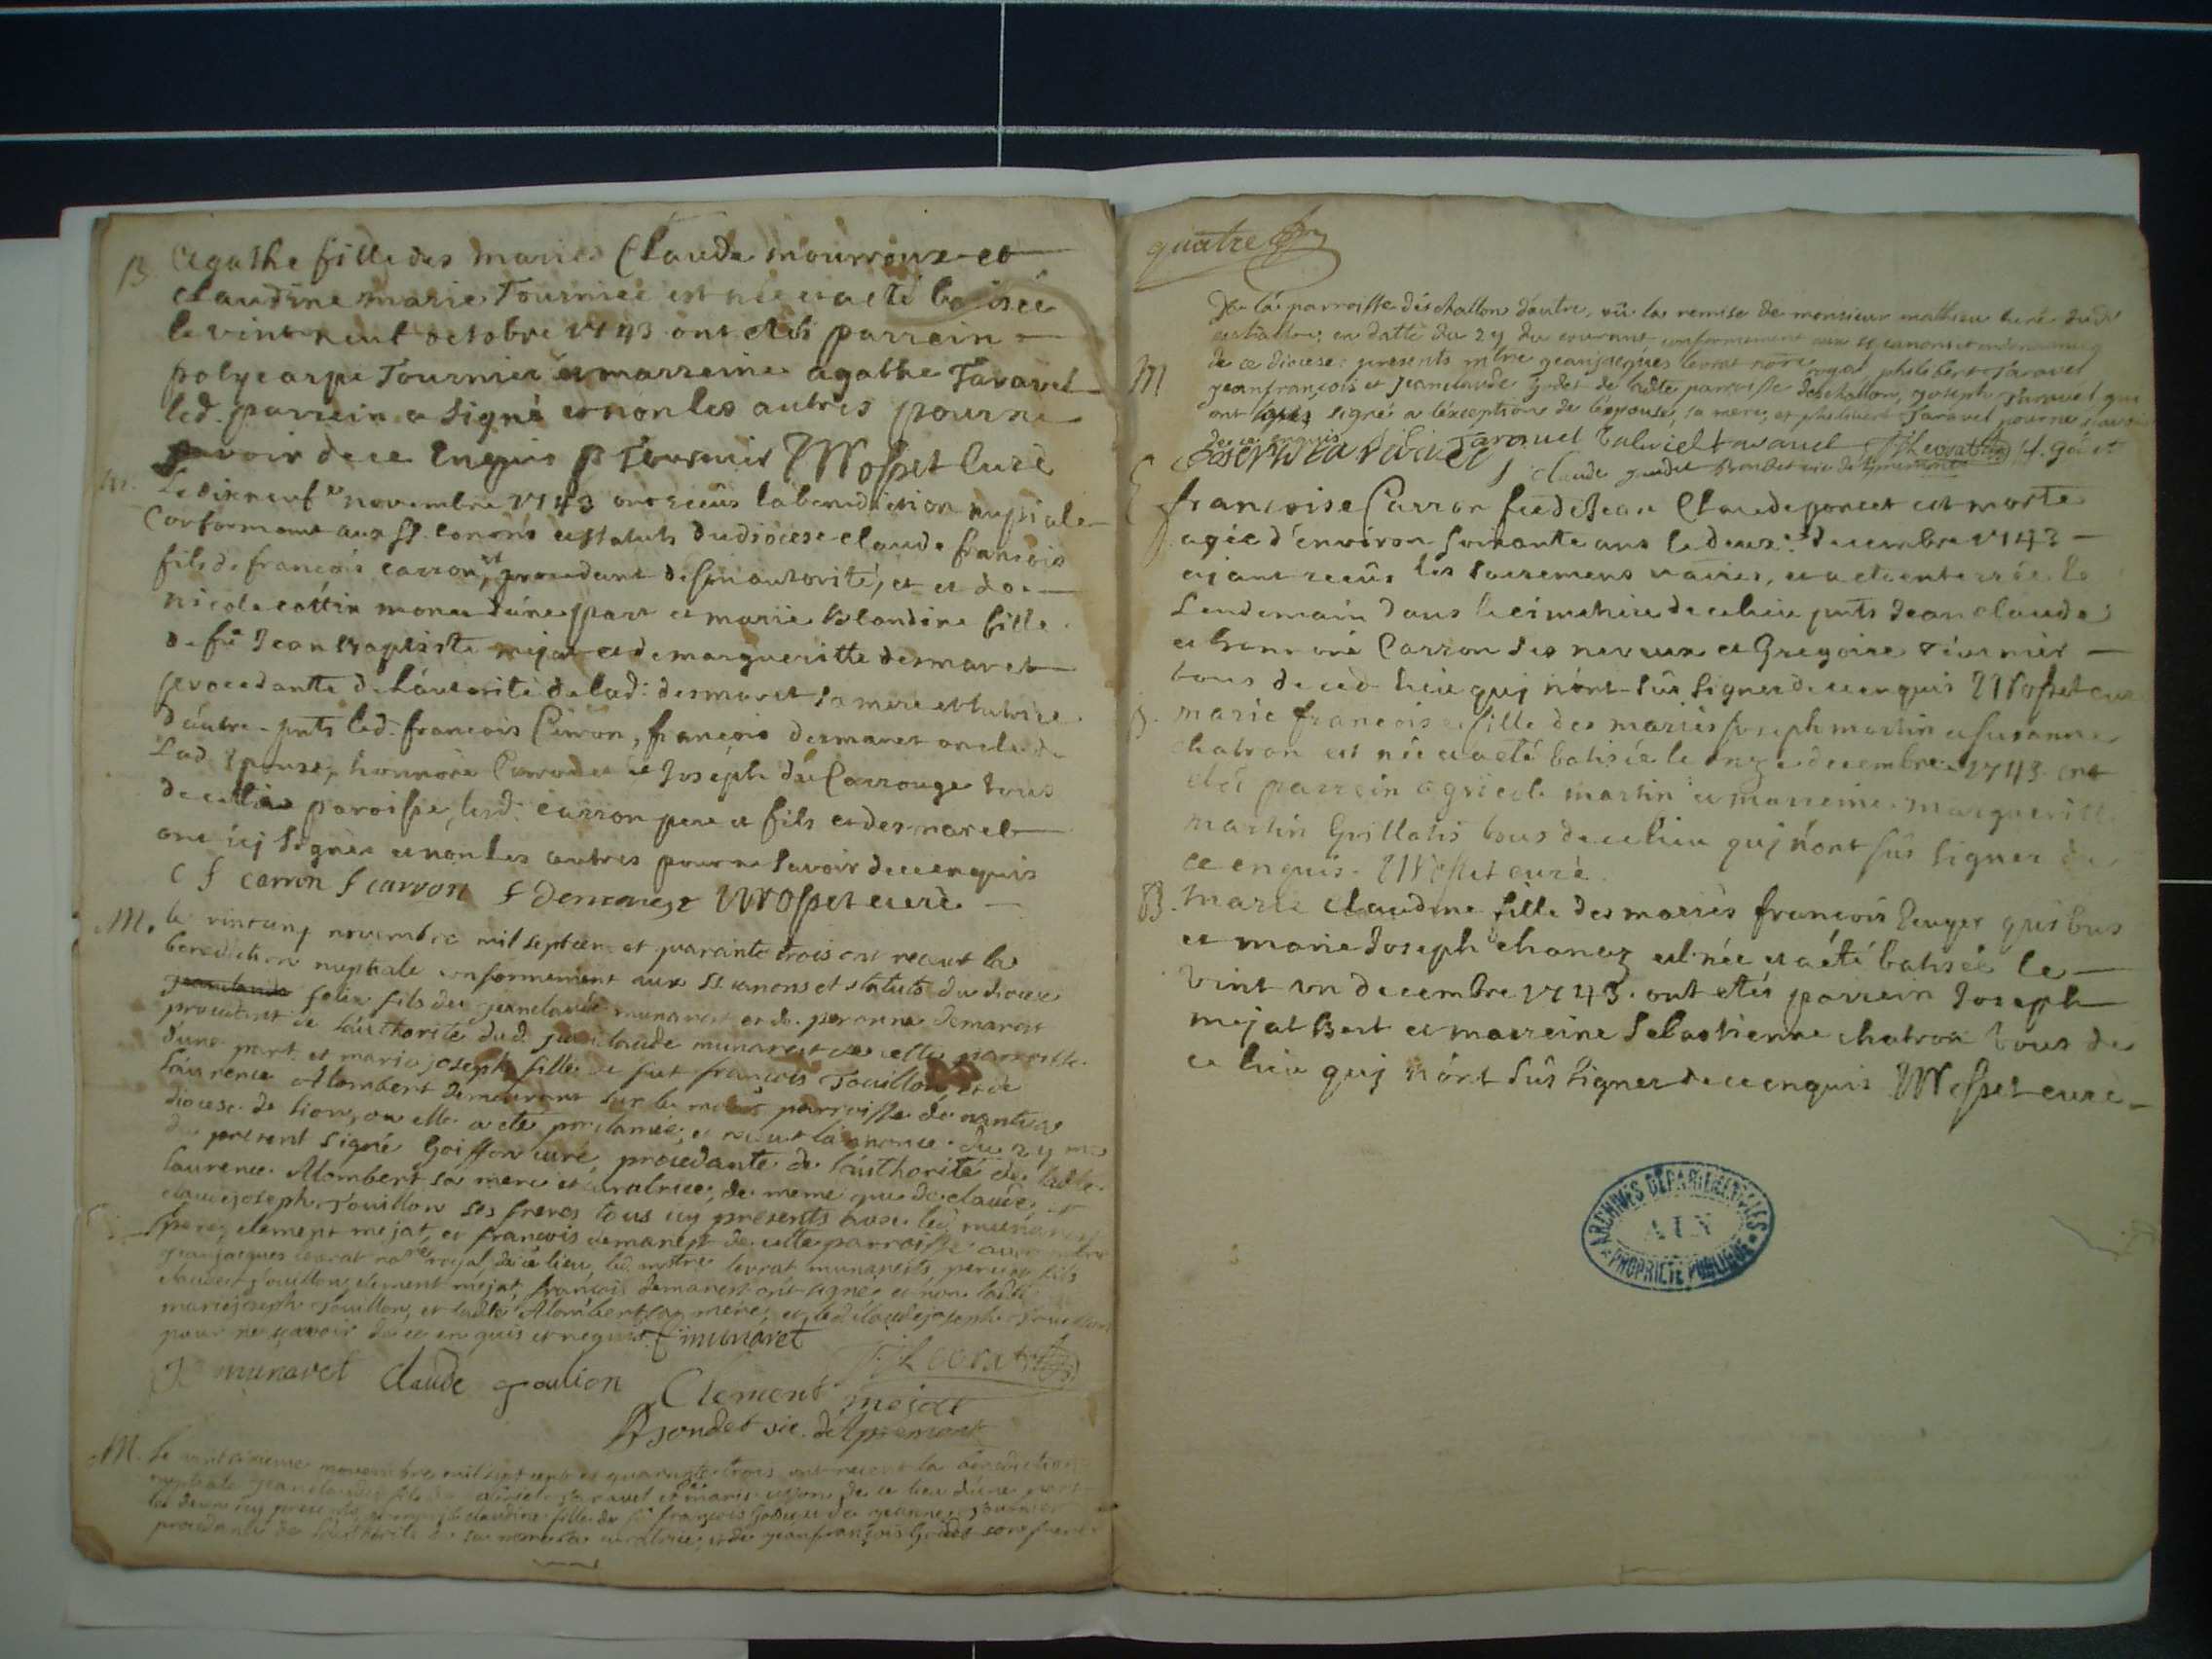 B. Agathe fille des mariés Claude mourroux et
claudine marie Tournier est née et a été batisée
le vint neuf octobre 1743 ont étés parrein
polycarpe Tournier et marreine agathe Taravel
led. parrein a signé et non les autres pour ne
savoir de ce Enquis P Tournier Mosset Curé
M. Le dix neuf novembre 1743 ont reçûs la benediction nupsiale
Conformement aux SS. canons et statuts du diocese claude francois
fils de francois carron, procedant de son autorité, et de
nicole cottin d'une part et marie blandine fille
de fû Jean Baptiste mejat et de margueritte desmaret
procedantte de l'autorité de lad: desmaret sa mere et tutrice
d'autre. pnts led. francois Carron, francois desmaret oncle de
Lad. Epouse, honnoré et Joseph du Carrouge tous
de cette paroisse, lesd: carron pere et fils et desmaret
ont icj signés et non les autres pour ne savoir de ce enquis
C f carron f carron f Demarest Mosset curé
M. le vint un novembre mil sept cent et quarante trois ont recut la
benediction nuptiale conformement aux SS canons et statuts du diocese
felix fils de jeanclaude munaret et de peronne demarest
procedant de l'authorité dud. jeanclaude munaret de cette parroisse
d'une part. et marie joseph fille de fut françois Jouillon et de
laurence Alombert demeurant sur le parroisse de nantua
diocese de lion, ou elle a eté proclamée, et recut l'annonce du 2y
du present signé Goiffon curé, procedante de l'authorité de ladte
laurence Alombert sa mere et curatrice, de meme que de claude, et
claudejoseph Jouillon ses freres tous icy presents avec led. munaret
pere, clement mejat, et francois demarest de cette parroisse avec mtre
jeanjacques levrat nore royal de ce lieu, led. mtre levrat munarets, pere et fils
claude Jouillon, clement mejat, françois demarest ont signé et non ladte
mariejoseph Jouillon, et ladte Alombert sa mere, et led. claudejoseph Jouillon
pour ne savoir de ce enquis et requis. f munaret
J munaret Claude Joulion J J Levrat
Clement mejat
Rondet vic. d'Apremont
M. Le vint novembre mil sept cent et quarante trois ont recut la benediction
nuptiale jeanclaude fils de Gabriel Taravel et marie de ce lieu d'une part
les deux icy presents, et claudine fille de fû françois Godet, et de jeanne Tournier
procedante de l'authorité de sa mere sa curatrice, et de jeanfrançois Godet son frere
quatre
De la parroisse d'éschallon d'autre, vû la remise de monsieur mathieu curé dud.
eschallon, en datte du 2y du courant conformement aux SS canons et ordonnances
M de ce diocese: presents mtre jeanjacques levrat nore royal philibert Taravel
jeanfrançois et jeanclaude godet de ladte parroisse d'eschallon, joseph Taravel qui
ont signé a l'exception de l'epouse, sa mere, et philibert Taravel pour ne savoir
de ce enquis
Joseph Taravel Taravel Gabriel taravel J J Levrat f. godet
claude godet Rondet vic. d'Apremont
E francoise Carron de Jean Claude poncet est morte
agée d'environ soixante ans le deux: decembre 1743
ajant reçûs les sacremens, et a été enterrée le
Lendemain dans le cimetiere de ce lieu pnts Jean claude
et honnoré Carron ses neveux et Gregoire Tournier
tous de ced. lieu quj n'ont sûs signer de ce enquis Mosset curé
B. marie francoise fille des mariés Joseph martin et susanne
chatron est née et a eté batisée le onze decembre 1743 ont
étés parrein agricole martin et marreine margueritte
martin Grillatis tous de ce lieu quj n'ont sûs signer de
ce enquis. Mosset curé
B. Marie claudine fille des mariés françois Reuyer quibus
et marie Joseph chanaz est née et a été batisée le
vint un decembre 1743. ont etés parrein Joseph
mejat et marreine Sebastienne chatron tous de
ce lieu quj n'ont sûs signer de ce enquis Mosset curé
ARCHIVES DÉPARTEMENTALES
AIN
PROPRIÉTÉ PUBLIQUE